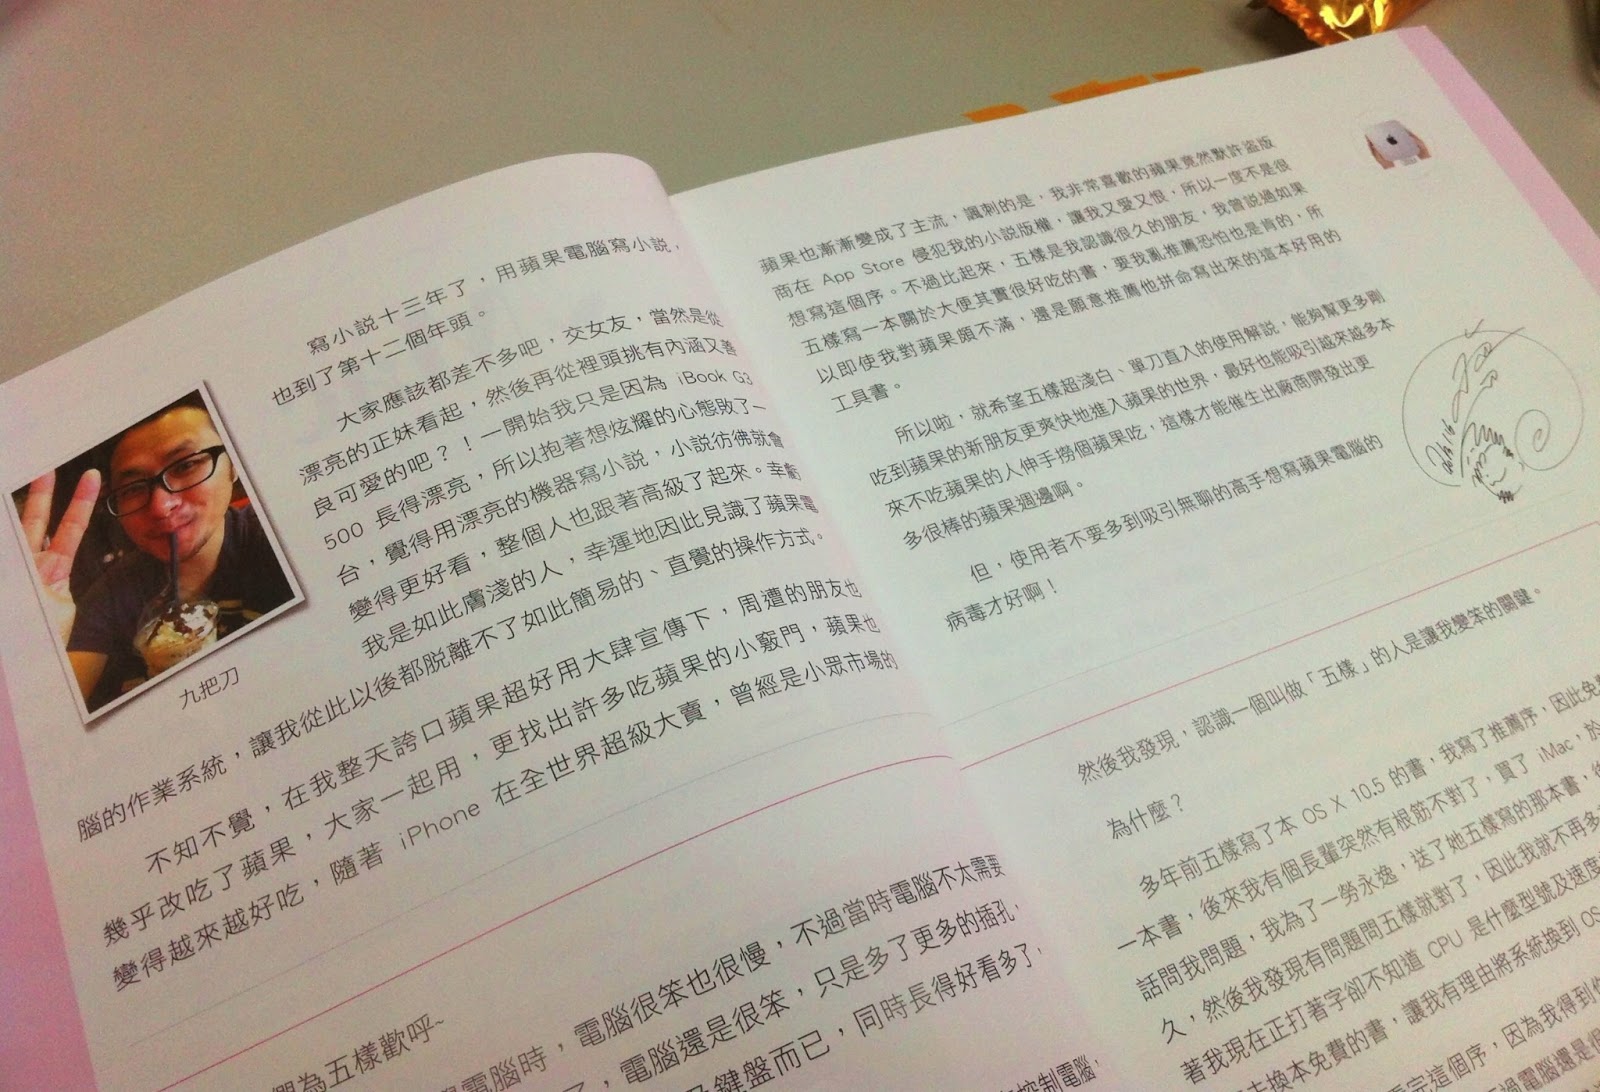 寫小說十三年了，用蘋果電腦寫小說，
也到了第十二個年頭。
大家應該都差不多吧，交女友，當然是從
漂亮的正妹看起，然後再從裡頭挑有內涵又善
良可愛的吧？！一開始我只是因為 iBook G3
500 長得漂亮，所以抱著想炫耀的心態敗了一
台，覺得用漂亮的機器寫小說，小說彷彿就會
變得更好看，整個人也跟著高級了起來。幸虧
我是如此膚淺的人，幸運地因此見識了蘋果電
腦的作業系統，讓我從此以後都脫離不了如此簡易的、直覺的操作方式。
不知不覺，在我整天誇口蘋果超好用大肆宣傳下，周遭的朋友也
幾乎改吃了蘋果，大家一起用，更找出許多吃蘋果的小竅門，蘋果也
變得越來越好吃，隨著 iPhone 在全世界超級大賣，曾經是小眾市場的
九把刀
為五樣歡呼~
電腦時，電腦很笨也很慢，不過當時電腦不太需要
了，電腦還是很笨，只是多了更多的插孔，
鍵盤而已，同時長得好看多了，
控制電腦，
蘋果也漸漸變成了主流，諷刺的是，我非常喜歡的蘋果竟然默許盜版
商在 App Store 侵犯我的小說版權，讓我又愛又恨，所以一度不是很
想寫這個序。不過比起來，五樣是我認識很久的朋友，我曾說過如果
五樣寫一本關於大便其實很好吃的書，要我亂推薦恐怕也是肯的，所
以即使我對蘋果頗不滿，還是願意推薦他拼命寫出來的這本好用的
工具書。
所以啦，就希望五樣超淺白、單刀直入的使用解說，能夠幫更多剛
吃到蘋果的新朋友更爽快地進入蘋果的世界，最好也能吸引越來越多本
來不吃蘋果的人伸手撈個蘋果吃，這樣才能催生出廠商開發出更
多很棒的蘋果週邊啊。
但，使用者不要多到吸引無聊的高手想寫蘋果電腦的
病毒才好啊！
然後我發現，認識一個叫做「五樣」的人是讓我變笨的關鍵。
為什麼？
多年前五樣寫了本 OS X 10.5 的書，我寫了推薦序，因此免費
一本書，後來我有個長輩突然有根筋不對了，買了 iMac，於
話問我問題，我為了一勞永逸，送了她五樣寫的那本書，後
久，然後我發現有問題問五樣就對了，因此我就不再多
著我現在正打著字卻不知道 CPU 是什麼型號及速度
去換本免費的書，讓我有理由將系統換到 OS
完這個序，因為我得到
電腦還是很